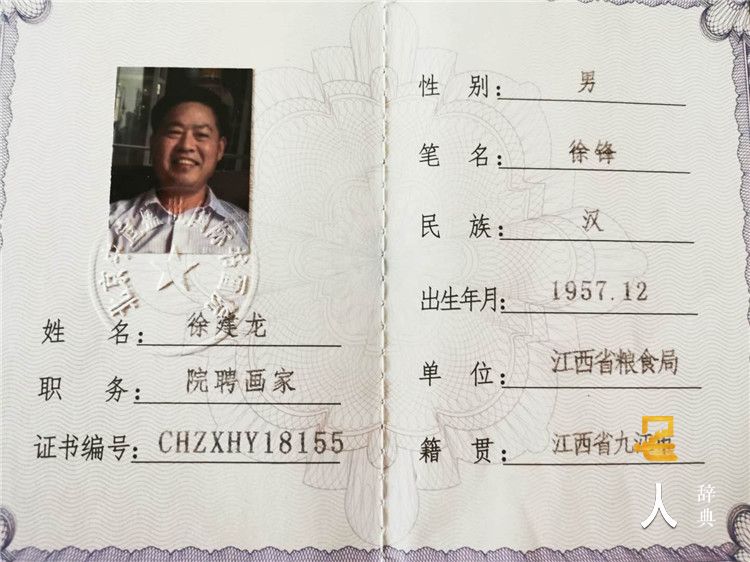 姓 名：徐建龙
职 务：院聘画家
证书编号：CHZXHY18155
性 别：男
笔 名：徐锋
民 族：汉
出生年月：1957.12
单 位：江西省粮食局
籍 贯：江西省九江市
名人
辞典